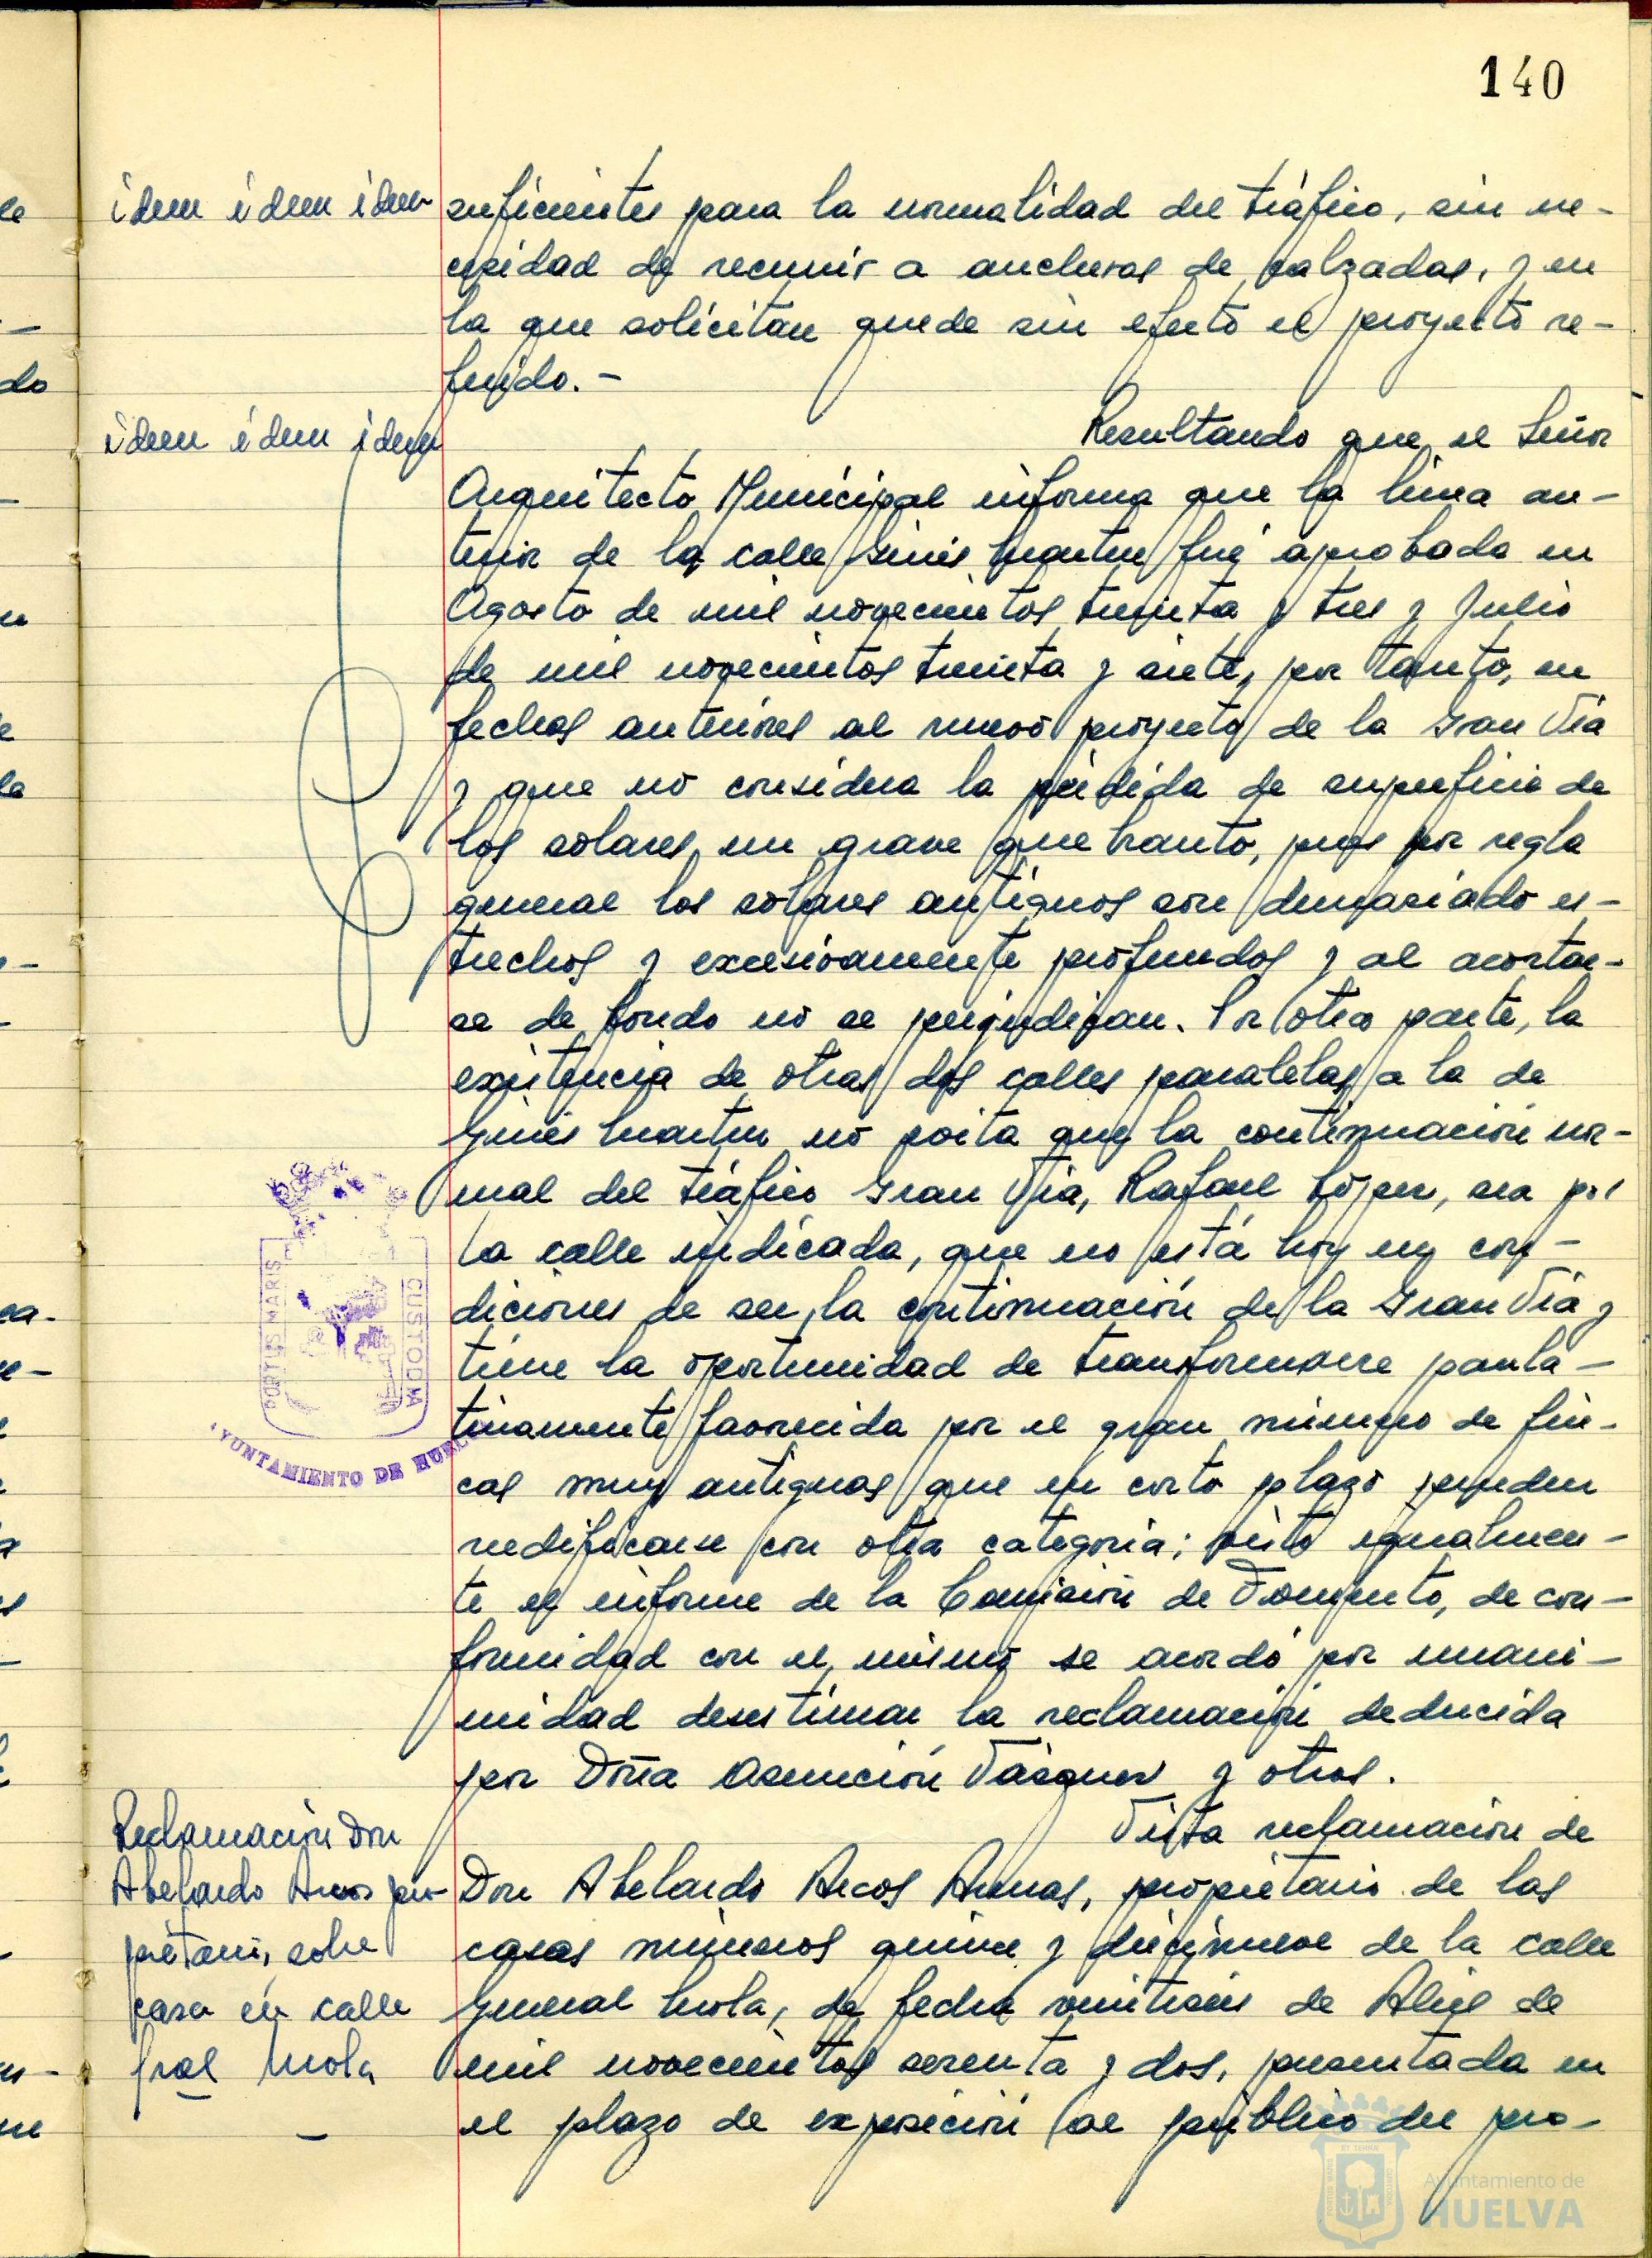 140
idem idem idem
suficientes para la normalidad del tráfico, sin ne-
cesidad de recurrir a anchuras de calzadas, y en
la que solicitan quede sin efecto el proyecto re-
ferido.-
idem idem idem
Resultando que el Señor
Arquitecto Municipal informa que la línea an-
terior de la calle Ginés Martín fué aprobada en
Agosto de mil novecientos treinta y tres y Julio
de mil novecientos treinta y siete, por tanto, en
fechas anteriores al nuevo proyecto de la Gran Vía
y que no considera la pérdida de superficie de
los solares un grave quebranto, pues por regla
general los solares antiguos son demasiado es-
trechos y excesivamente profundos y al acortar-
se de fondo no se perjudican. Por otra parte, la
existencia de otras dos calles paralelas a la de
Ginés Martín no evita que la continuación nor-
mal del tráfico Gran Vía, Rafael López, sea por
la calle indicada, que no está hoy en con-
diciones de ser la continuación de la Gran Vía y
tiene la oportunidad de transformarse paula-
tinamente favorecida por el gran número de fin-
cas muy antiguas que en corto plazo pueden
reedificarse con otra categoría; visto igualmen-
te el informe de la Comisión de Fomento, de con-
formidad con el mismo se acordó por unani-
midad desestimar la reclamación deducida
por Doña Asunción Vázquez y otros.
PORTUS MARIS
CUSTODIA
AYUNTAMIENTO DE HUELVA
Reclamación Don
Abelardo Arcos pro-
pietario, sobre
casa en calle
Gral Mola
Vista reclamación de
Don Abelardo Arcos Arenas, propietario de las
casas números quince y diecinueve de la calle
General Mola, de fecha veintiseis de Abril de
mil novecientos sesenta y dos, presentada en
el plazo de exposición al público del pro-
Ayuntamiento de
HUELVA